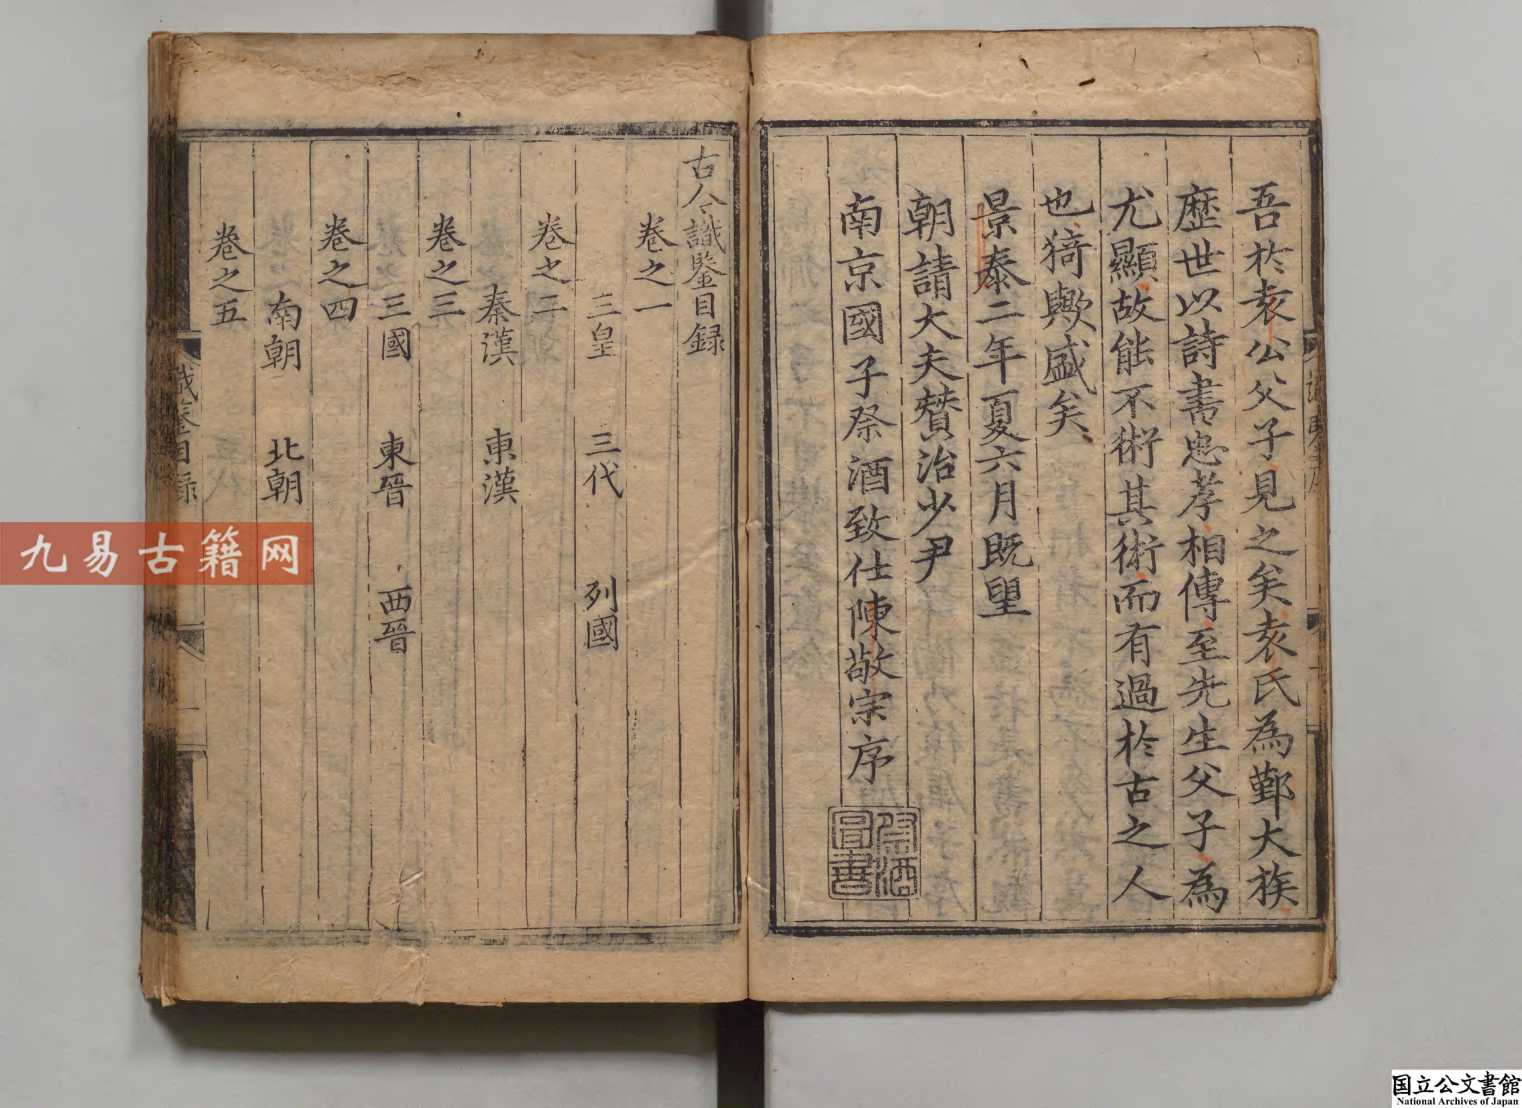 吾於袁公父子見之矣袁氏為鄞大族
歷世以詩書忠孝相傳至先生父子為
尤顯故能不術其術而有過於古之人
也猗歟盛矣
景泰二年夏六月既望
朝請大夫贊治少尹
南京國子祭酒致仕陳敬宗序
祭酒
圖書
古今識鑒目録
卷之一
三皇 三代 列國
卷之二
秦漢 東漢
卷之三
三國 東晉 西晉
卷之四
南朝 北朝
卷之五
識鑒目録
九易古籍网
国立公文書館
National Archives of Japan